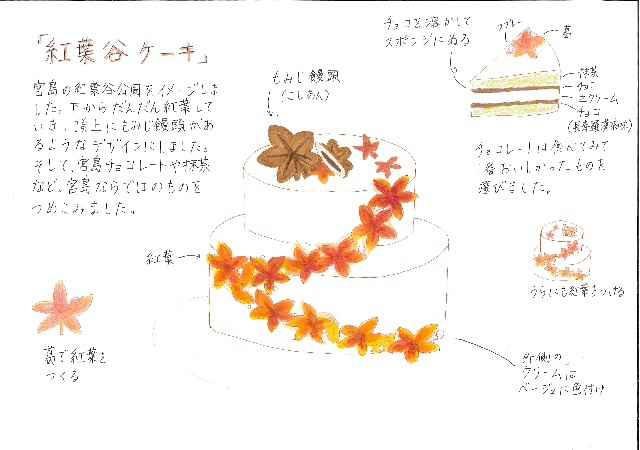 「紅葉谷ケーキ」
宮島の紅葉谷公園をイメージしま
した。下からだんだん紅葉して
いき、頂上にもみじ饅頭があ
るようなデザインにしました。
そして、宮島チョコレートや抹茶
など、宮島ならではのものを
つめこみました。
もみじ饅頭
(こしあん)
チョコを溶かして
スポンジにぬる
葛
抹茶
チョコ
生クリーム
チョコ
チョコレートは食べてみて
一番おいしかったものを
選びました。
紅葉
うらにも紅葉をつける
葛で紅葉を
つくる
外側の
クリームは
ベージュに色付け